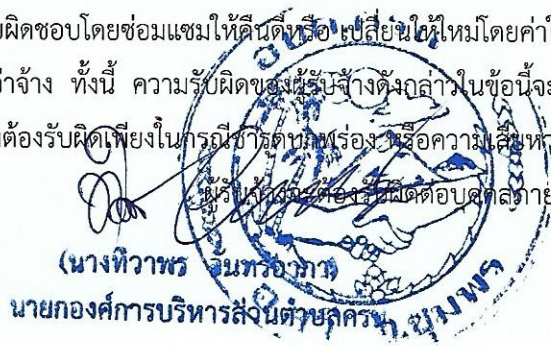 ผิดชอบโดยซ่อมแซมให้คืนดีหรือ เปลี่ยนให้ใหม่โดยค่า
จ้าง ทั้งนี้ ความรับผิดของผู้รับจ้างดังกล่าวในข้อนี้จะ
ต้องรับผิดเพียงในกรณีชำรุดบกพร่อง หรือความเสียหา
ผู้รับจ้างจะต้องรับผิดต่อบุคคลภาย
(นางทิวาพร จันทร์อาภา)
นายกองค์การบริหารส่วนตำบลครน
จ.ชุมพร